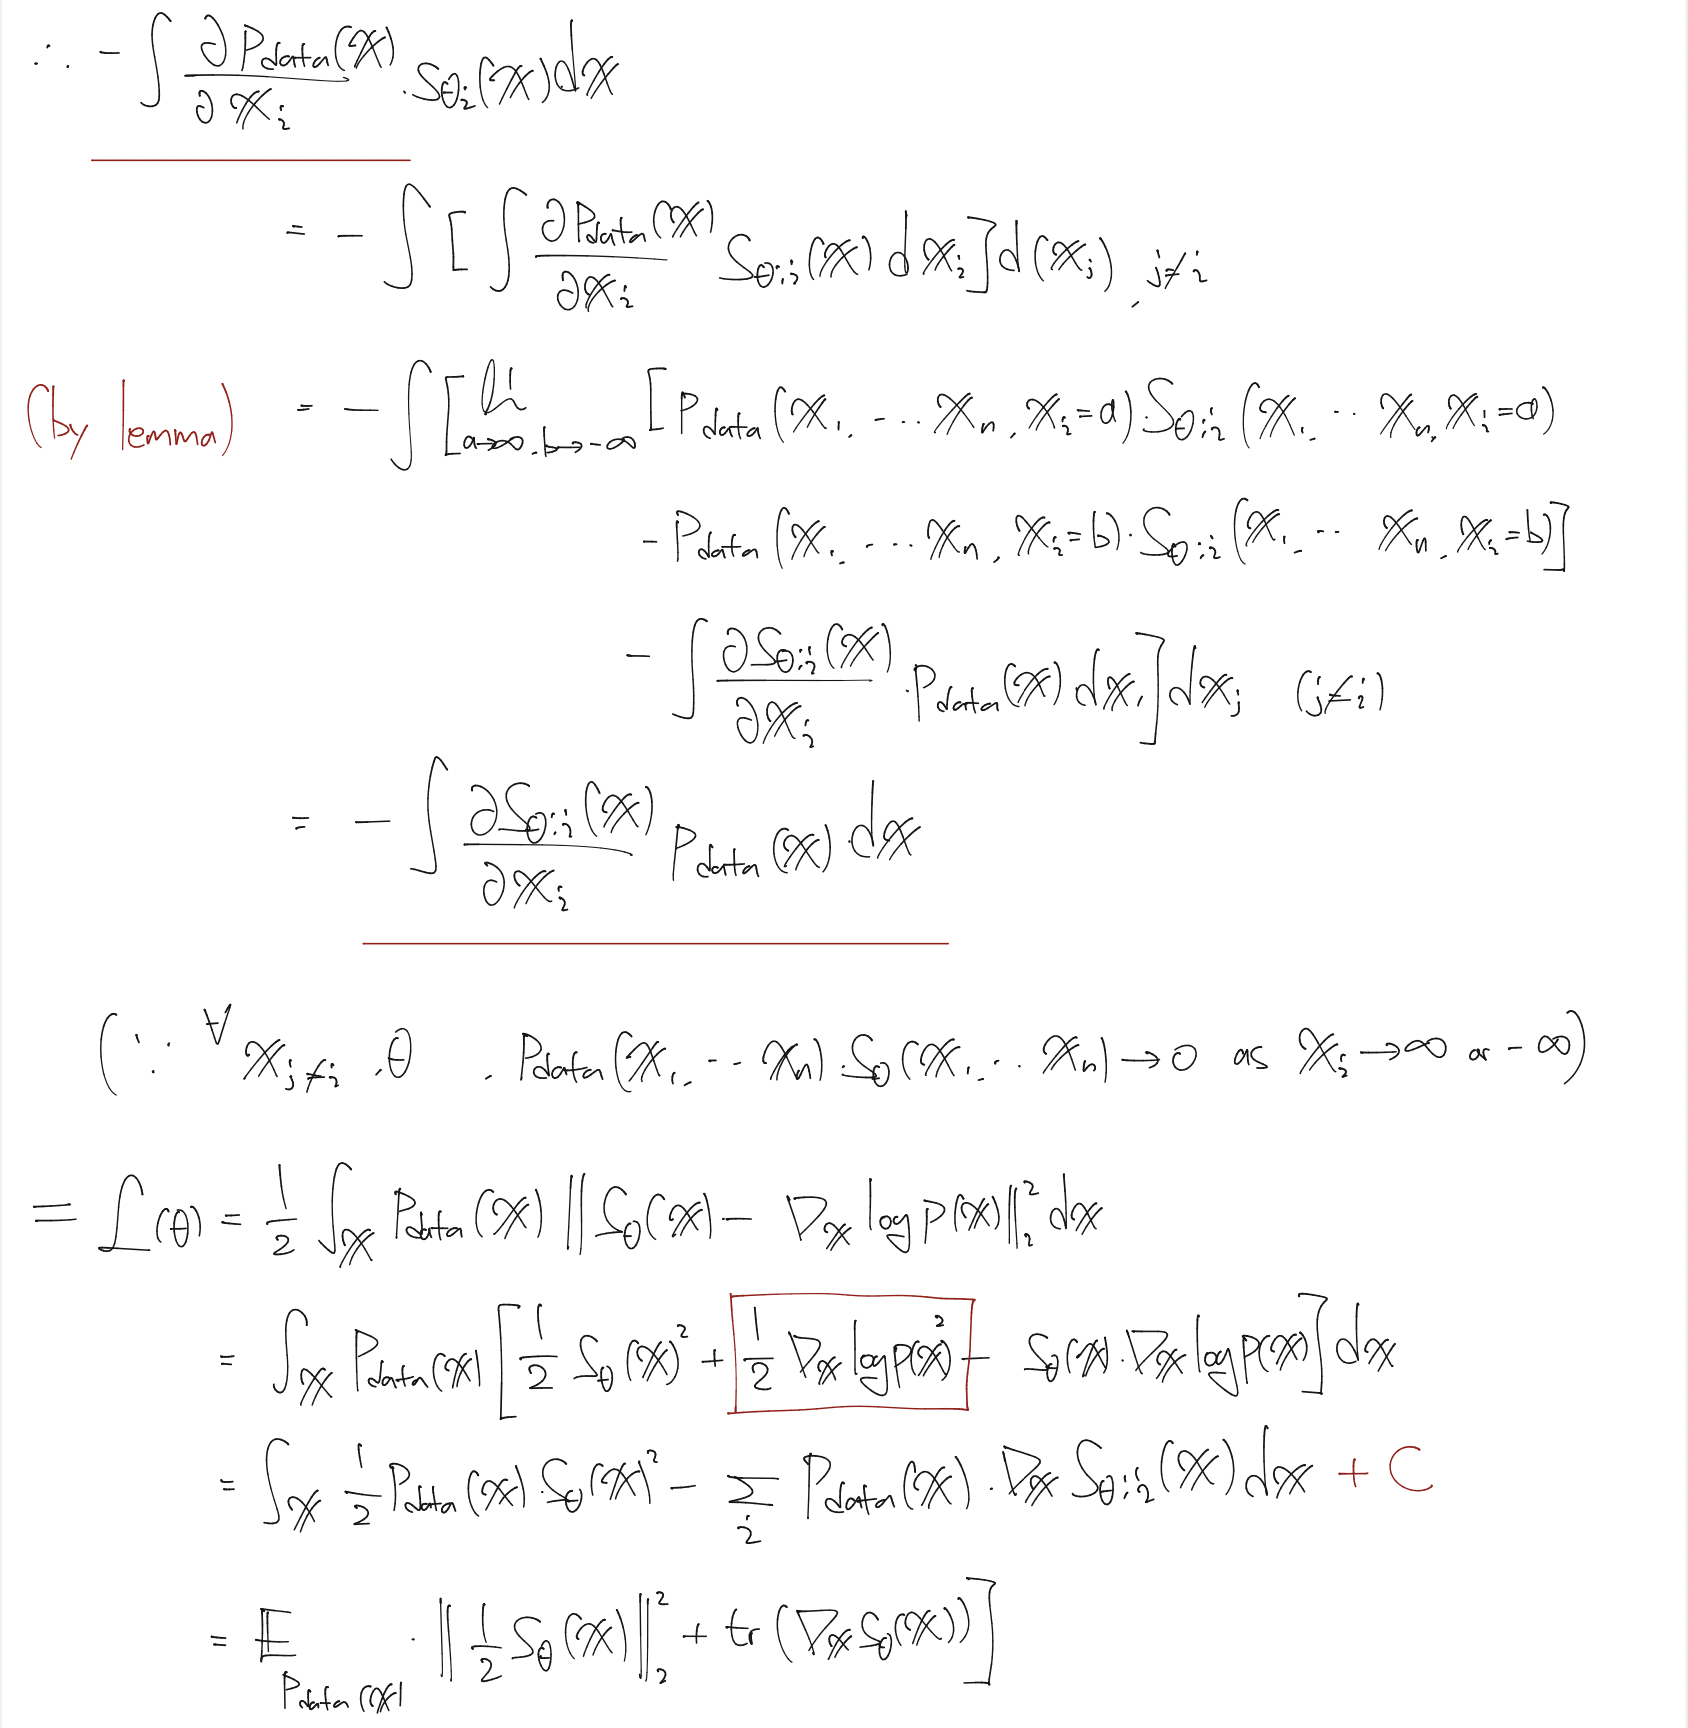 ∴ - ∫ ∂Pdata(x)/∂x_i · S_θi(x)dx
= - ∫ [ ∫ ∂Pdata(x)/∂x_i S_θ;i(x) dx_i ] d(x_j) , j≠i
(by lemma) = - ∫ [ lim a→∞, b→-∞ [ Pdata(x_1, ... x_n, x_i=a) S_θ;i(x_1, ... x_n, x_i=a)
- Pdata(x_1, ... x_n, x_i=b) · S_θ;i(x_1, ... x_n, x_i=b) ]
- ∫ ∂S_θ;i(x)/∂x_i · Pdata(x) dx_i ] dx_j (j≠i)
= - ∫ ∂S_θ;i(x)/∂x_i Pdata(x) dx
(∵ ∀ x_j≠i, θ , Pdata(x_1, ... x_n) · S_θ(x_1, ... x_n) → 0 as x_i → ∞ or -∞)
= L(θ) = 1/2 ∫_x Pdata(x) || S_θ(x) - ∇_x log p(x) ||_2^2 dx
= ∫_x Pdata(x) [ 1/2 S_θ(x)^2 + 1/2 ∇_x log p(x)^2 - S_θ(x) · ∇_x log p(x) ] dx
= ∫_x 1/2 Pdata(x) · S_θ(x)^2 - Σ_i Pdata(x) · ∇_x S_θ;i(x) dx + C
= E_Pdata(x) · || 1/2 S_θ(x) ||_2^2 + tr(∇_x S_θ(x)) ]